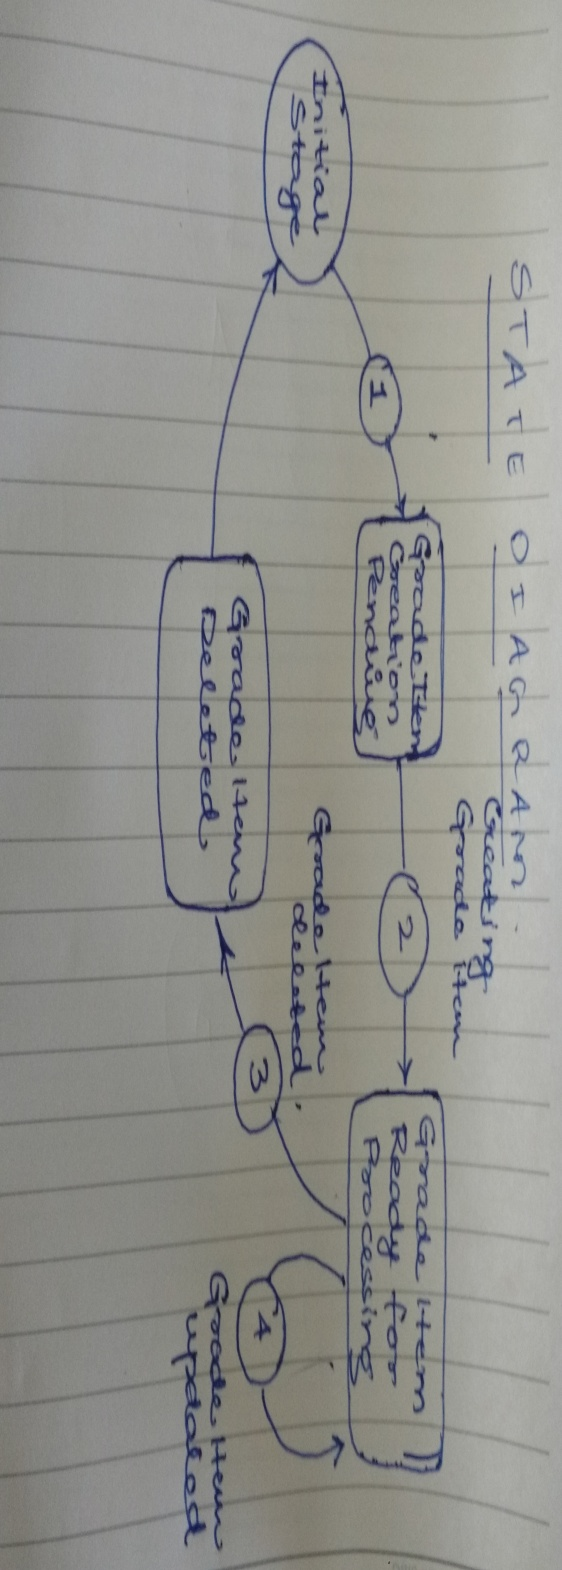 STATE DIAGRAM
Initial
Stage
1
Grade Item
Creation
Pending
Creating
Grade item
2
Grade Item
Ready for
Processing
Grade Item
deleted
3
Grade Item
Deleted
4
Grade Item
updated